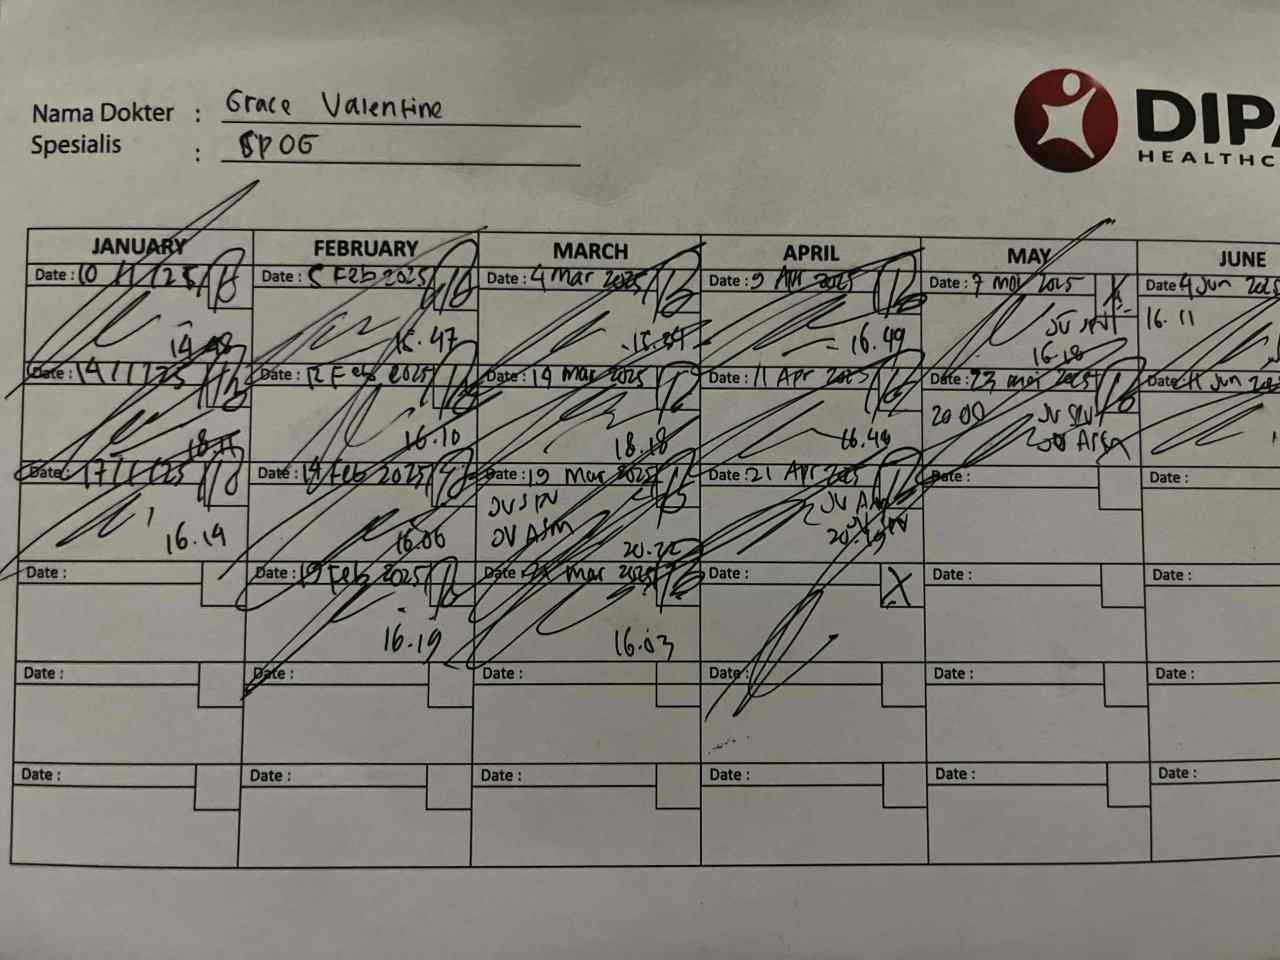 Nama Dokter : Grace Valentine
Spesialis : SPOG
DIPA
HEALTHC
JANUARY FEBRUARY MARCH APRIL MAY JUNE
Date : 10/1/25 Date : 5 Feb 2025 Date : 4 Mar 2025 Date : 9 Apr 2025 Date : 7 mei 2025 Date 4 Jun 2025
JV SPV 16.11
15.47 16.49 16.18
Date : 14/1/25 Date : 12 Feb 2025 Date : 14 Mar 2025 Date : 11 Apr 2025 Date : 23 mei 2025 Date : 11 Jun
20.00 JV SPV
16.10 18.18 16.49 JV ASM
Date : 17/1/25 Date : 14 Feb 2025 Date : 19 Mar 2025 Date : 21 Apr 2025 Date : Date :
JV SPV
JV ASM
16.14 16.06 20.22
Date : Date : 19 Feb 2025 Date : Mar 2025 Date : X Date : Date :
16.19 16.03
Date : Date : Date : Date : Date : Date :
Date : Date : Date : Date : Date : Date :